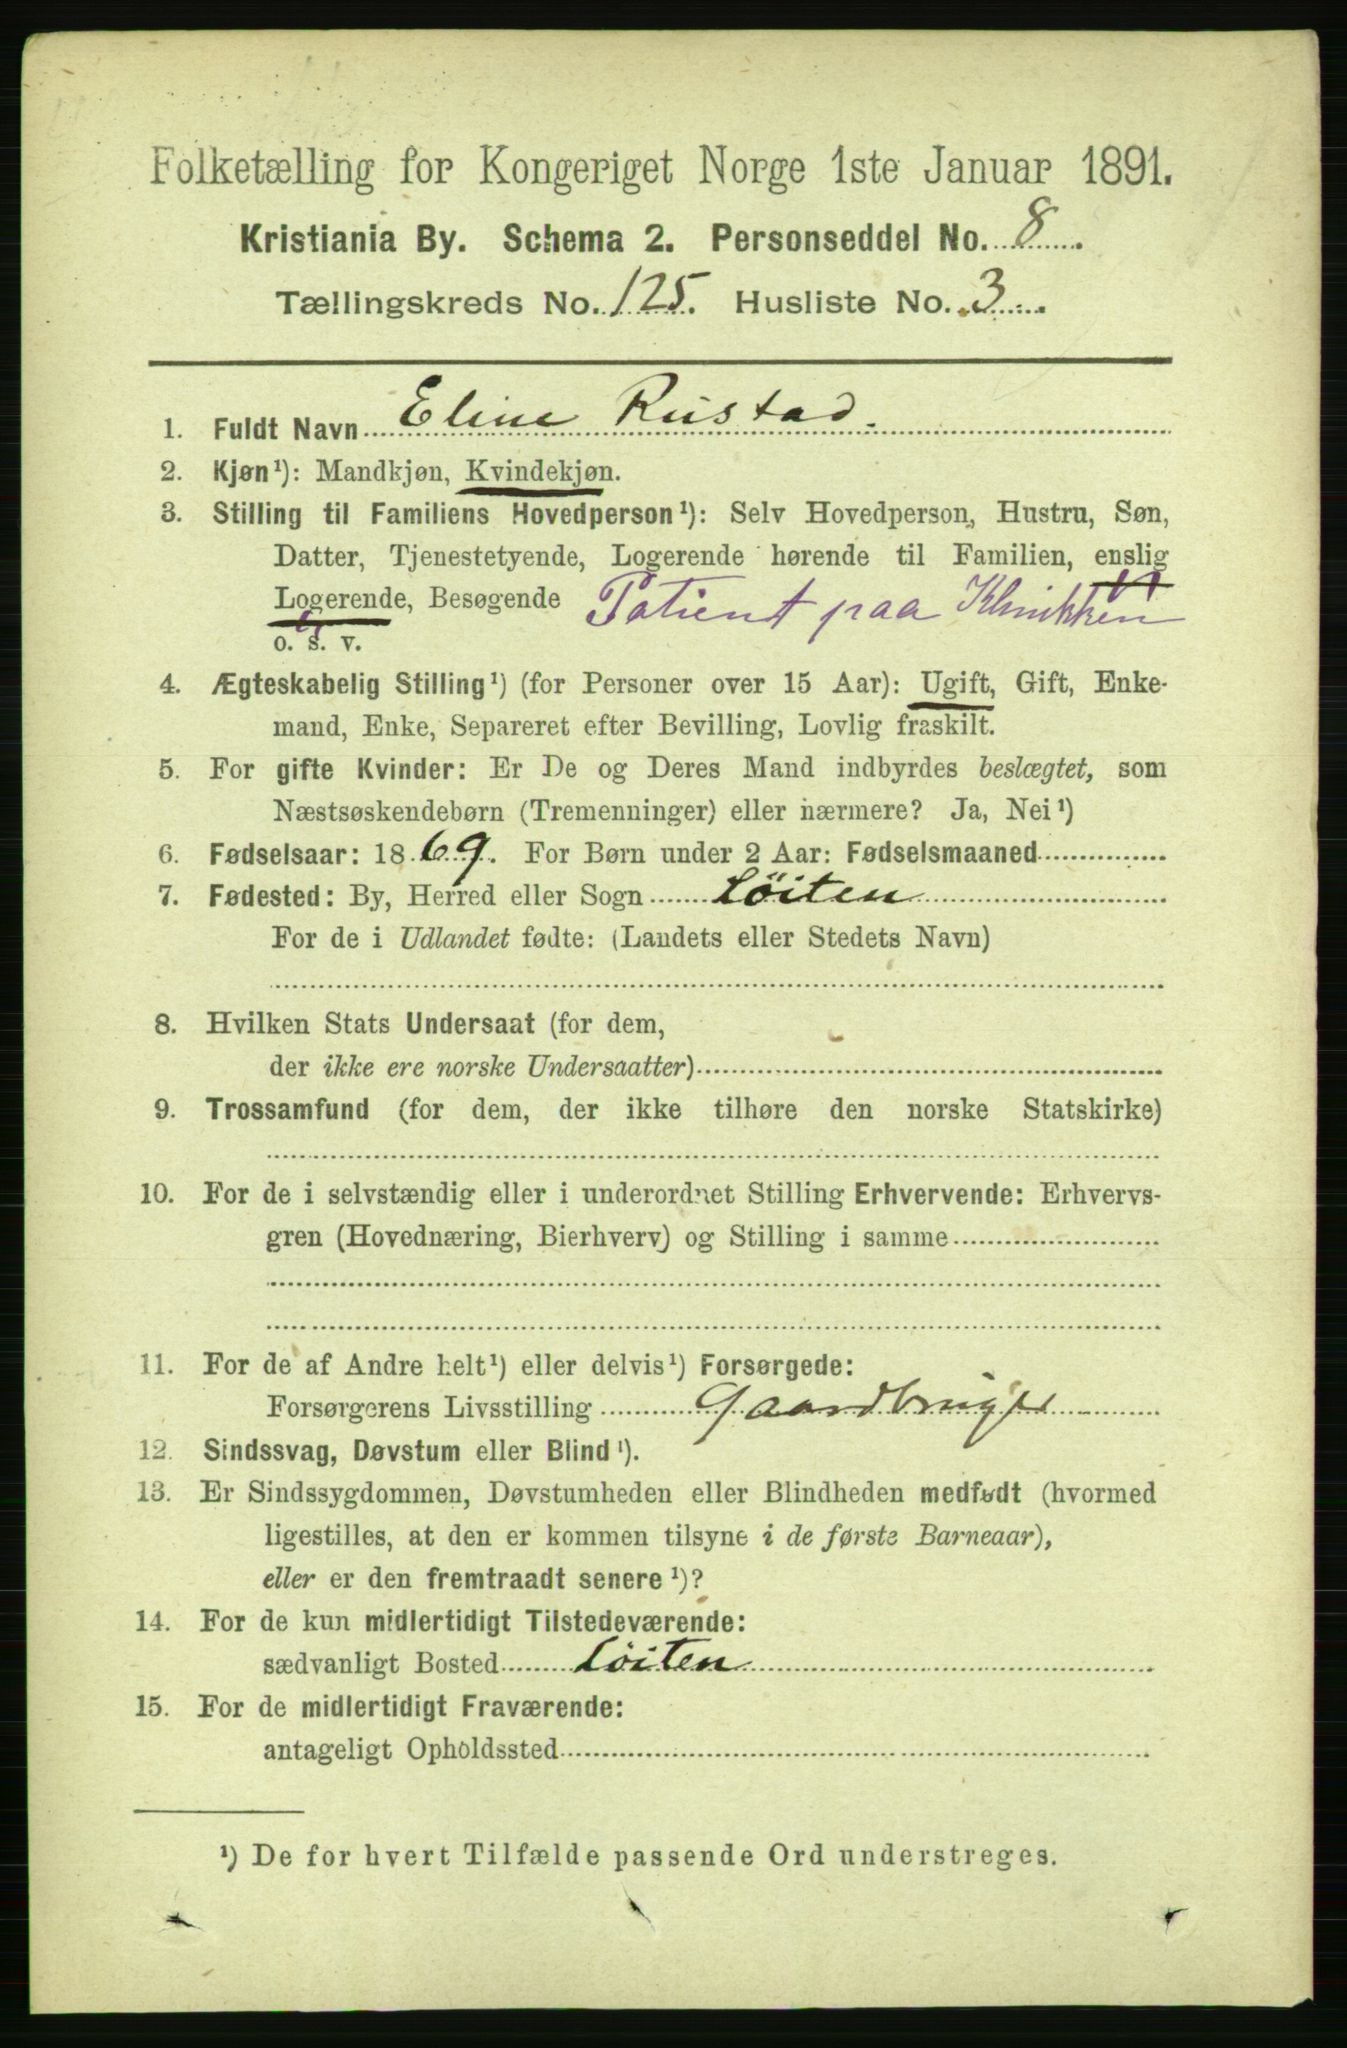 Folketælling for Kongeriget Norge 1ste Januar 1891.
Kristiania By. Schema 2. Personseddel No. 8.
Tællingskreds No. 125. Husliste No. 3.
1. Fuldt Navn Eline Rustad.
2. Kjøn¹): Mandkjøn, Kvindekjøn.
3. Stilling til Familiens Hovedperson¹): Selv Hovedperson, Hustru, Søn,
Datter, Tjenestetyende, Logerende hørende til Familien, enslig
Logerende, Besøgende Patient paa Klinikken
o. s. v.
4. Ægteskabelig Stilling¹) (for Personer over 15 Aar): Ugift, Gift, Enke-
mand, Enke, Separeret efter Bevilling, Lovlig fraskilt.
5. For gifte Kvinder: Er De og Deres Mand indbyrdes beslægtet, som
Næstsøskendebørn (Tremenninger) eller nærmere? Ja, Nei¹)
6. Fødselsaar: 1869. For Børn under 2 Aar: Fødselsmaaned
7. Fødested: By, Herred eller Sogn Löiten
For de i Udlandet fødte: (Landets eller Stedets Navn)
8. Hvilken Stats Undersaat (for dem,
der ikke ere norske Undersaatter)
9. Trossamfund (for dem, der ikke tilhøre den norske Statskirke)
10. For de i selvstændig eller i underordnet Stilling Erhvervende: Erhvervs-
gren (Hovednæring, Bierhverv) og Stilling i samme
11. For de af Andre helt¹) eller delvis¹) Forsørgede:
Forsørgerens Livsstilling Gaardbruger
12. Sindssvag, Døvstum eller Blind¹).
13. Er Sindssygdommen, Døvstumheden eller Blindheden medfødt (hvormed
ligestilles, at den er kommen tilsyne i de første Barneaar),
eller er den fremtraadt senere¹)?
14. For de kun midlertidigt Tilstedeværende:
sædvanligt Bosted Löiten
15. For de midlertidigt Fraværende:
antageligt Opholdssted
¹) De for hvert Tilfælde passende Ord understreges.